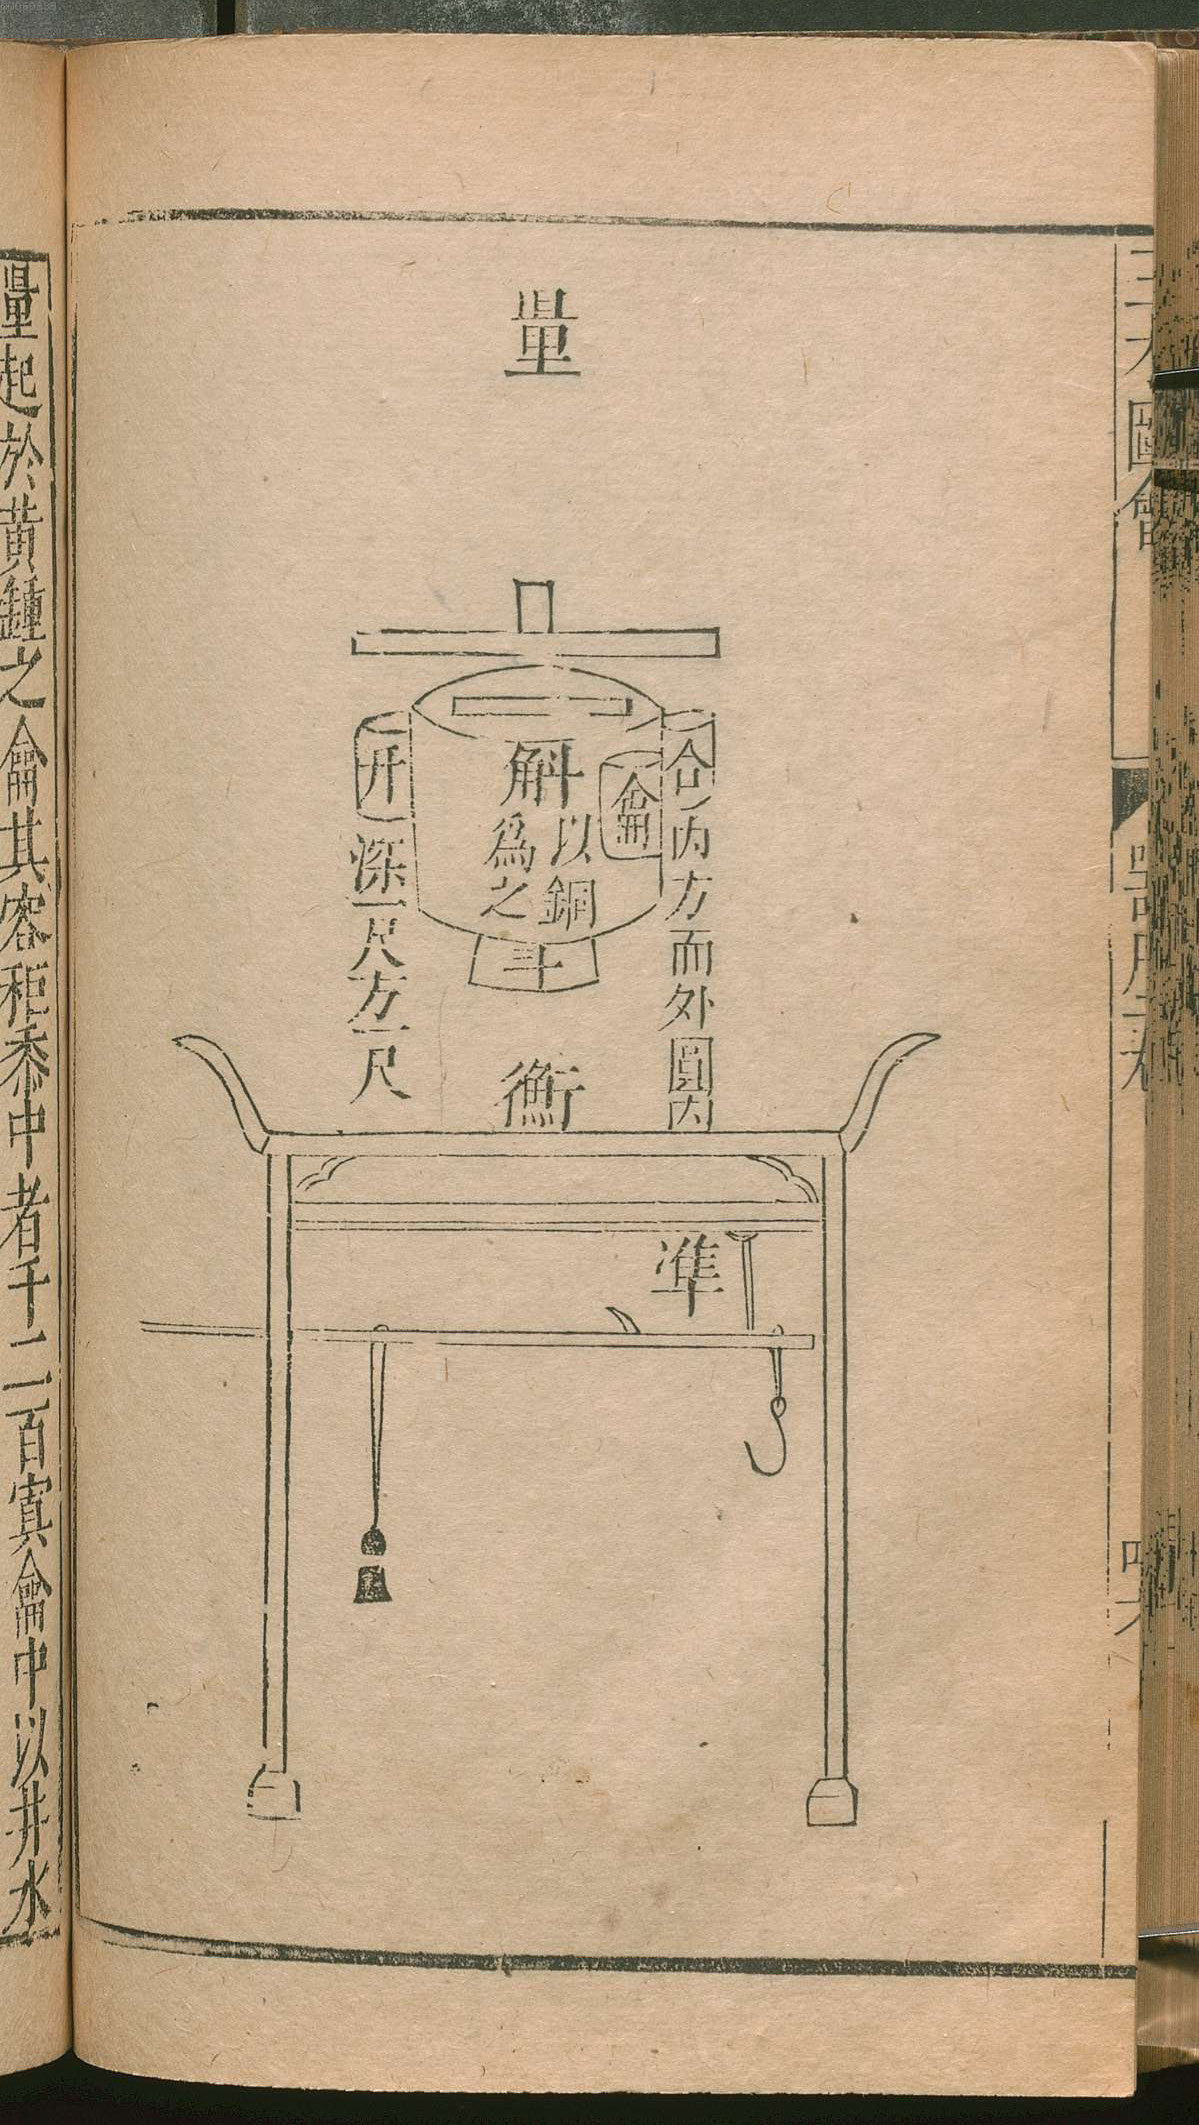 三才圖會
器用二卷
量
合
內方而外圓內
龠
斛
以銅
爲之
斗
升
深一尺方一尺
衡
準
量起於黃鍾之龠其容秬黍中者千二百寘龠中以井水